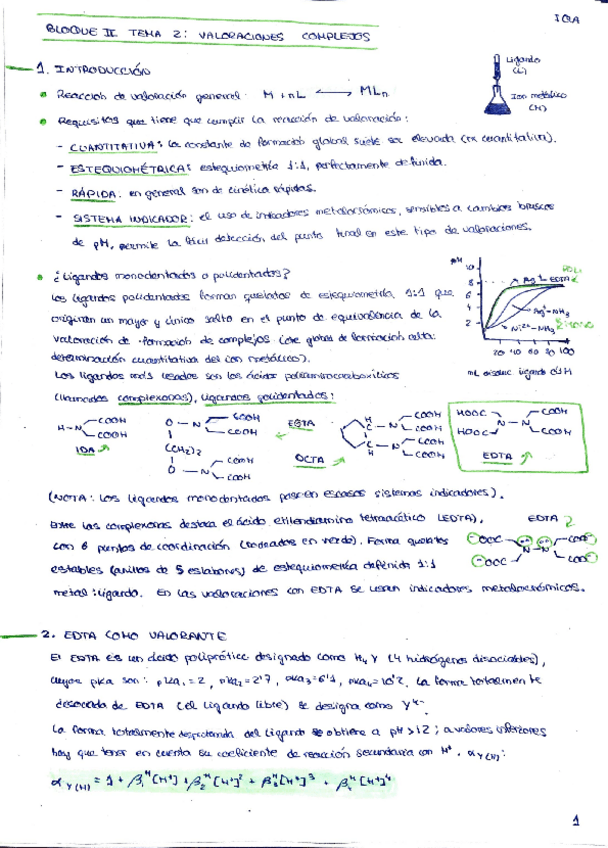 IQA
BLOQUE II TEMA 2: VALORACIONES COMPLEJOS
1. INTRODUCCIÓN
Ligando
(L)
Ion metálico
(M)
Reacción de valoración general: M + nL ⟷ MLn
Requisitos que tiene que cumplir la reacción de valoración:
- CUANTITATIVA: la constante de formación global suele ser elevada (rx cuantitativa).
- ESTEQUIOMÉTRICA: estequiometría 1:1, perfectamente definida.
- RÁPIDA: en general son de cinética rápidas.
- SISTEMA INDICADOR: el uso de indicadores metalocrómicos, sensibles a cambios bruscos
de pH, permite la fácil detección del punto final en este tipo de valoraciones.
¿Ligandos monodentados o polidentados?
Los ligandos polidentados forman quelatos de estequiometría 1:1 que
originan un mayor y único salto en el punto de equivalencia de la
valoración de formación de complejos (cte global de formación alta:
determinación cuantitativa del ion metálico).
Los ligandos más usados son los ácidos poliaminocarboxílicos
(llamados complexonas), ligandos polidentados:
pM
10
8
6
4
2
20 40 60 80 100
mL disoluc. ligando
H-N COOH COOH
IDA
O - N COOH COOH
(CH2)2
O - N COOH COOH
EGTA
H C - N COOH COOH
C - N COOH COOH
H
HOOC HOOC N - N COOH COOH
EDTA
(NOTA: Los ligandos monodentados poseen escasos sistemas indicadores).
Entre las complexonas destaca el ácido etilendiamino tetraacético (EDTA),
con 6 puntos de coordinación (rodeados en verde). Forma quelatos
estables (anillos de 5 eslabones) de estequiometría definida 1:1
metal:ligando. En las valoraciones con EDTA se usan indicadores metalocrómicos.
EDTA
OOC OOC N - N COO COO
2. EDTA COMO VALORANTE
El EDTA es un ácido poliprótico designado como H4Y (4 hidrógenos disociables),
cuyos pKa son: pKa1 = 2, pKa2 = 2'7, pKa3 = 6'1, pKa4 = 10'2. La forma totalmente
de EDTA (el ligando libre) se designa como Y4-.
La forma totalmente desprotonada del ligando se obtiene a pH > 12; a valores inferiores
hay que tener en cuenta su coeficiente de reacción secundaria con H+, αY(H):
αY(H) = 1 + β1^H [H+] + β2^H [H+]^2 + β3^H [H+]^3 + β4^H [H+]^4
1